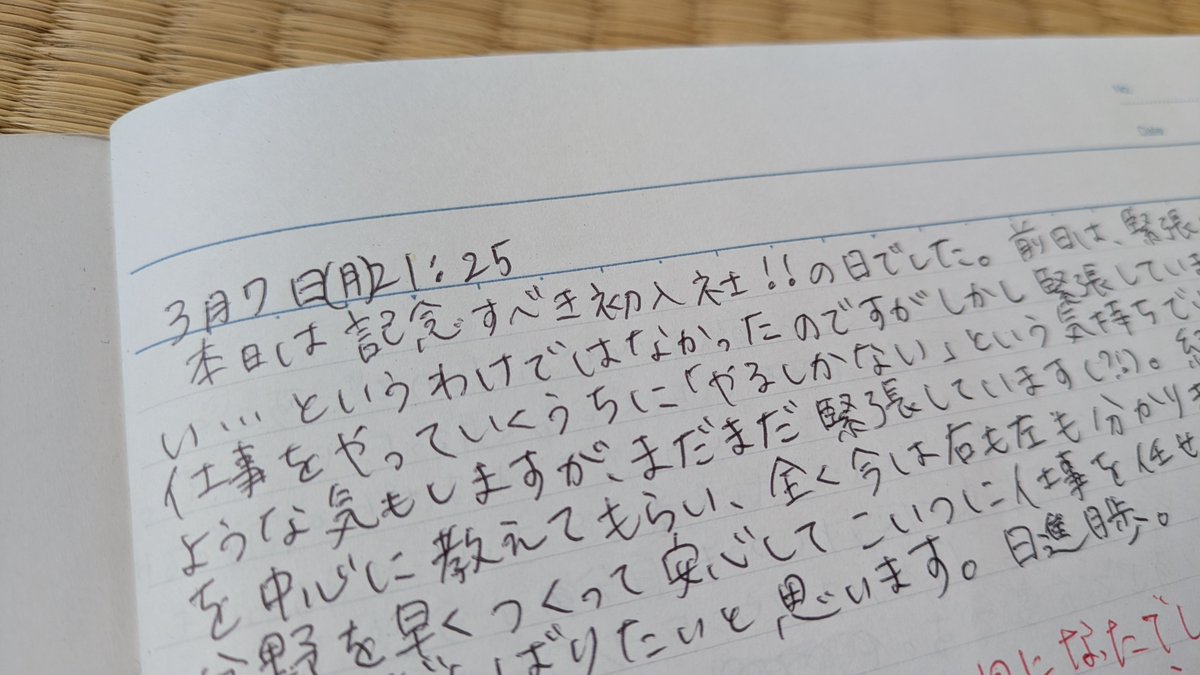 No.
Date
3月7日(月)21:25
本日は記念すべき初入社!!の日でした。前日は、緊張
い…というわけではなかったのですがしかし緊張していま
仕事をやっていくうちに「やるしかない」という気持ちで
ような気もしますが、まだまだ緊張しています(?!)。
を中心に教えてもらい、全く今は右も左も分かりま
分野を早くつくって安心してこいつに仕事を任せ
ばりたいと思います。日進月歩。
になったでし